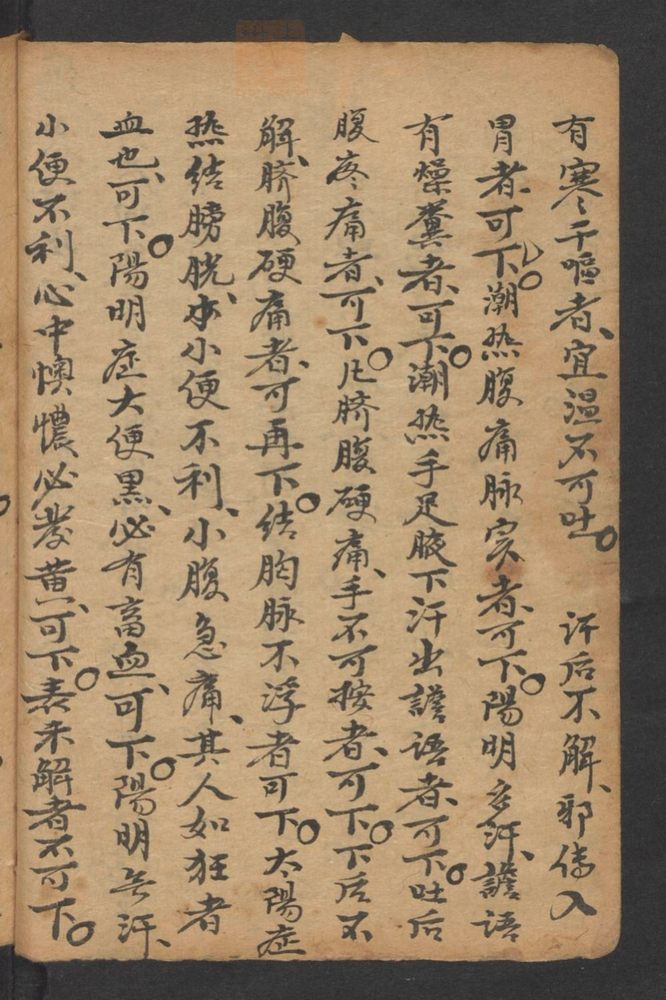 有寒干嘔者、宜温不可吐。 汗后不解、邪傳入
胃者、可下。潮热腹痛脉实者、可下。陽明多汗、譫语
有燥糞者、可下。潮热手足腋下汗出譫语者、可下。吐后
腹疼痛者、可下。凡脐腹硬痛、手不可按者、可下。下后不
解、脐腹硬痛者、可再下。结胸脉不浮者可下。太陽症
热结膀胱、小便不利、小腹急痛、其人如狂者
血也、可下。陽明症大便黑、必有畜血、可下。陽明无汗、
小便不利、心中懊憹必發黄、可下。表未解者不可下。